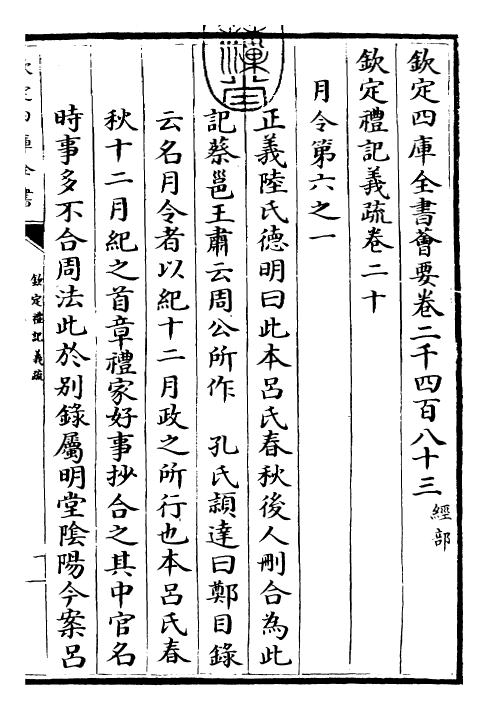 欽定四庫全書薈要卷二千四百八十三 經部
欽定禮記義疏卷二十
月令第六之一
正義陸氏德明曰此本呂氏春秋後人刪合為此
記蔡邕王肅云周公所作 孔氏穎達曰鄭目錄
云名月令者以紀十二月政之所行也本呂氏春
秋十二月紀之首章禮家好事抄合之其中官名
時事多不合周法此於別錄屬明堂陰陽今案呂
欽定四庫全書
欽定禮記義疏
一